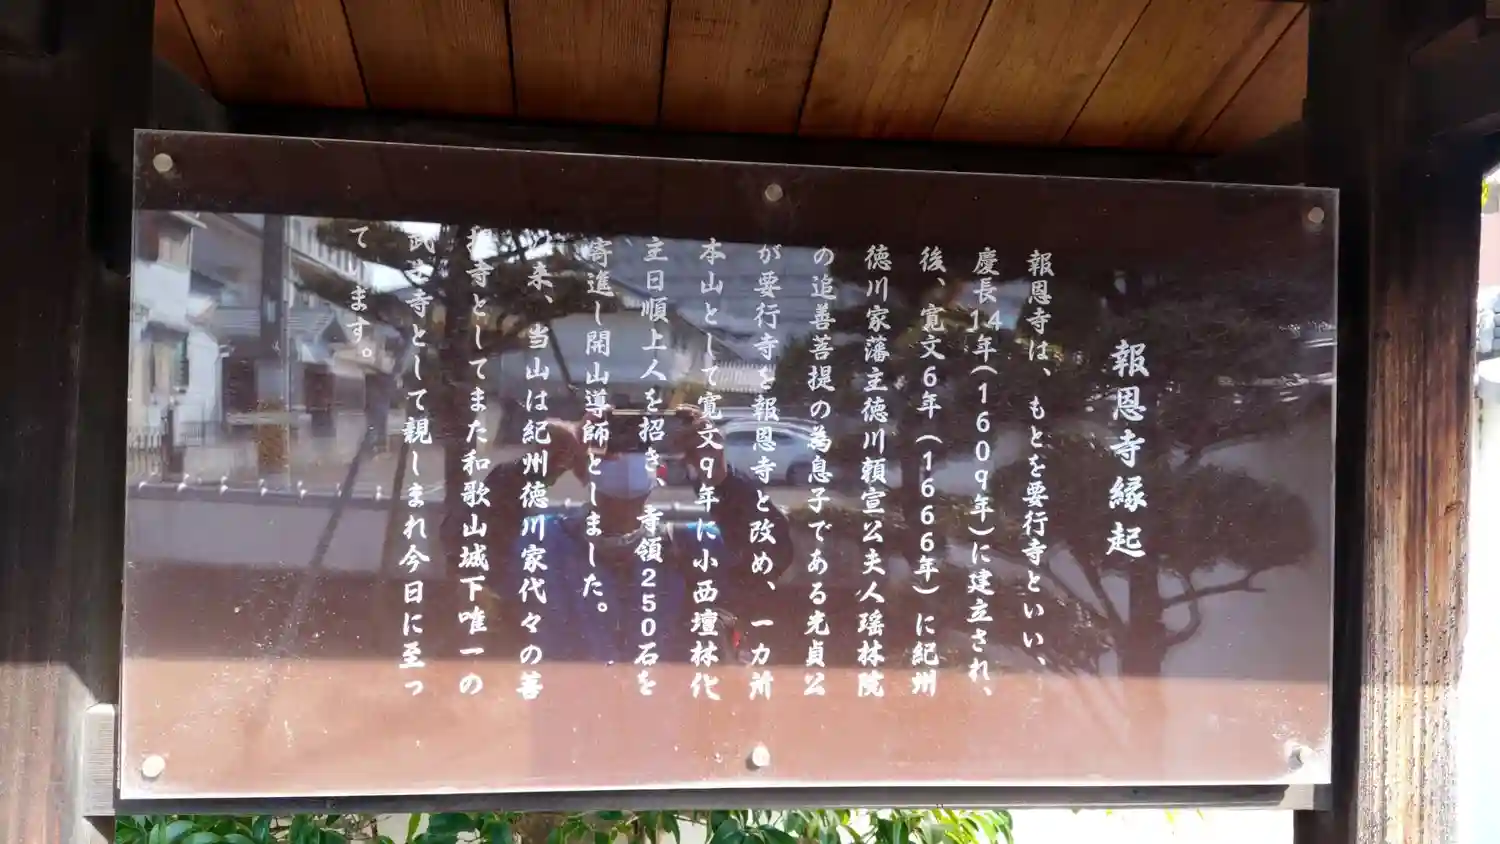 報恩寺縁起
報恩寺は、もとを要行寺といい、
慶長14年(1609年)に建立され、
後、寛文6年(1666年)に紀州
徳川家藩主徳川頼宣公夫人瑶林院
の追善菩提の為息子である光貞公
が要行寺を報恩寺と改め、一カ所
本山として寛文9年に小西壇林化
主日順上人を招き、寺領250石を
寄進し開山導師としました。
来、当山は紀州徳川家代々の善
寺としてまた和歌山城下唯一の
武士寺として親しまれ今日に至っ
てます。